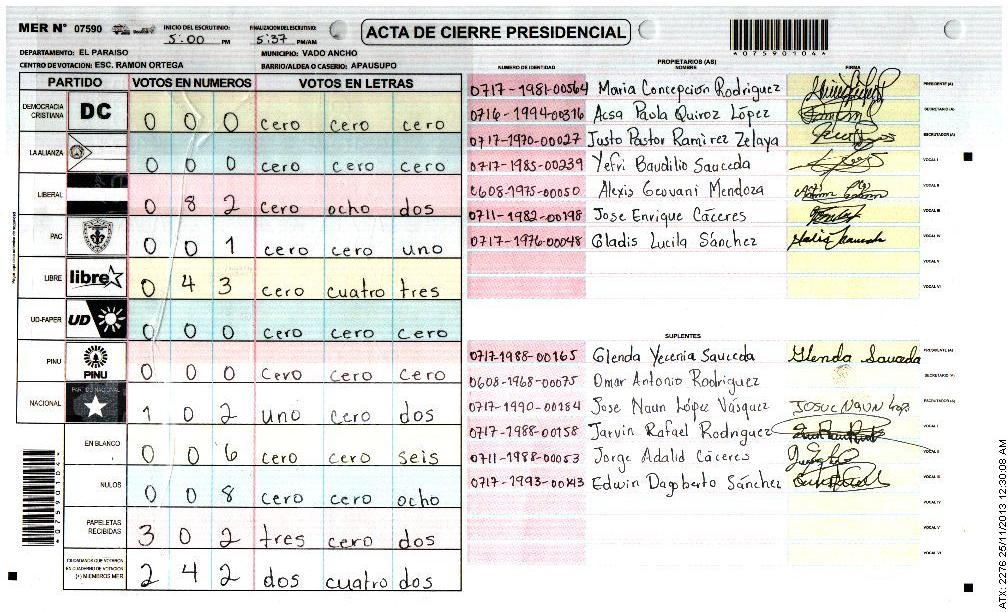 MER N° 07590
INICIO DEL ESCRUTINIO: 5:00 PM
FINALIZACION DEL ESCRUTINIO: 5:37 PM/AM
ACTA DE CIERRE PRESIDENCIAL
4075901044
DEPARTAMENTO: EL PARAISO
MUNICIPIO: VADO ANCHO
CENTRO DE VOTACION: ESC. RAMON ORTEGA
BARRIO/ALDEA O CASERIO: APAUSUPO
PARTIDO VOTOS EN NUMEROS VOTOS EN LETRAS
DEMOCRACIA CRISTIANA DC 0 0 0 cero cero cero
LA ALIANZA 0 0 0 cero cero cero
LIBERAL 0 8 2 cero ocho dos
PAC 0 0 1 cero cero uno
LIBRE libre 0 4 3 cero cuatro tres
UD-FAPER UD 0 0 0 cero cero cero
PINU PINU 0 0 0 cero cero cero
NACIONAL 1 0 2 uno cero dos
EN BLANCO 0 0 6 cero cero seis
NULOS 0 0 8 cero cero ocho
PAPELETAS RECIBIDAS 3 0 2 tres cero dos
CIUDADANOS QUE VOTARON EN CUADERNO DE VOTACION (+) MIEMBROS MER 2 4 2 dos cuatro dos
PROPIETARIOS (AS)
NUMERO DE IDENTIDAD NOMBRE FIRMA
0717-1981-00564 Maria Concepcion Rodriguez PRESIDENTE (A)
0716-1994-00316 Acsa Paola Quiroz López SECRETARIO (A)
0717-1970-00027 Justo Pastor Ramirez Zelaya ESCRUTADOR (A)
0717-1985-00239 Yefri Baudilio Sauceda VOCAL I
0608-1975-00050 Alexis Geovani Mendoza VOCAL II
0711-1982-00198 Jose Enrique Cáceres VOCAL III
0717-1976-00048 Gladis Lucila Sánchez VOCAL IV
VOCAL V
VOCAL VI
SUPLENTES
0717-1988-00165 Glenda Yecenia Sauceda Glenda Sauceda PRESIDENTE (A)
0608-1968-00075 Omar Antonio Rodriguez SECRETARIO (A)
0717-1990-00184 Jose Naun López Vásquez ESCRUTADOR (A)
0717-1988-00158 Jarvin Rafael Rodriguez VOCAL I
0711-1988-00053 Jorge Adalid Cáceres VOCAL II
0717-1993-00143 Edwin Dagoberto Sánchez VOCAL III
VOCAL IV
VOCAL V
VOCAL VI
ATX: 2276 25/11/2013 12:30:08 AM